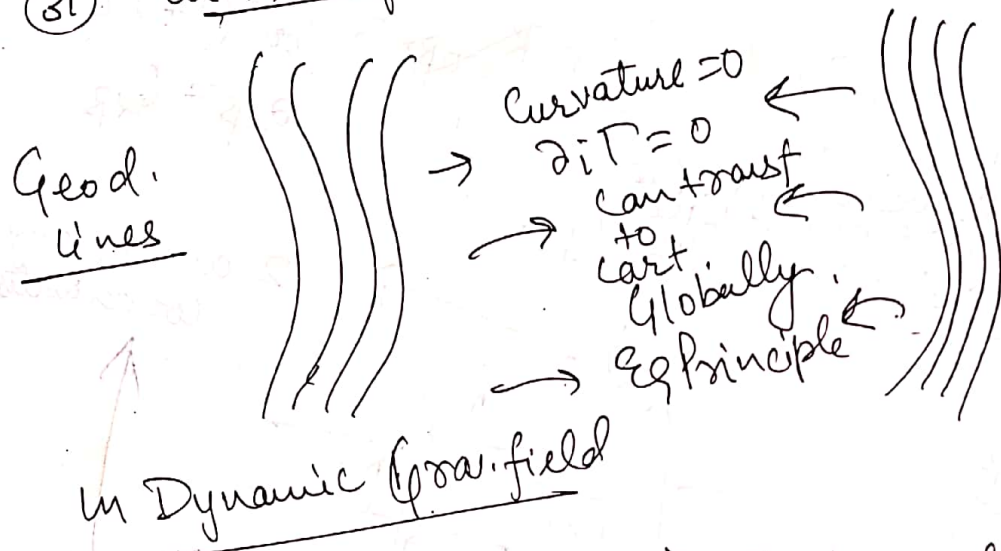 31
Geod.
lines
Curvature = 0
∂iΓ = 0
Can transf
to
Cart.
Globally.
Eq Principle
in Dynamic Grav. field